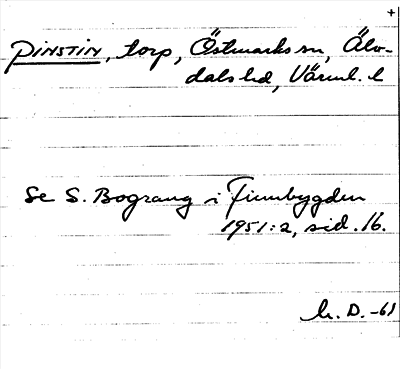 +
PINSTIN, torp, Östmarks sn, Älv-
dals hd, Värml. l
Se S. Bograng i Finnbygden
1951:2, sid. 16.
h. D. -61